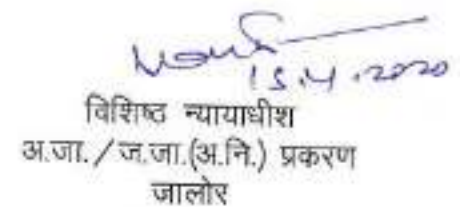 15.4.2020
विशिष्ठ न्यायाधीश
अ.जा./ज.जा.(अ.नि.) प्रकरण
जालोर